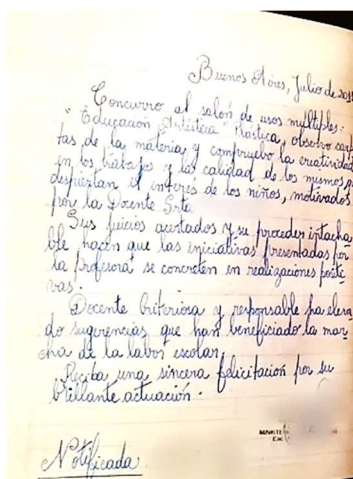 Buenos Aires, Julio de 201
Concurro al salón de usos múltiples.
"Educación Artística" Plástica, observo carpe
tas de la materia y compruebo la creatividad
en los trabajos y la calidad de los mismos,
despiertan el interés de los niños, motivados
por la Docente Srta.
Sus juicios acertados y su proceder intacha
ble hacen que las iniciativas presentadas por
la profesora se concreten en realizaciones positi
vas.
Docente criteriosa y responsable ha eleva
do sugerencias que han beneficiado la mar
cha de la labor escolar.
Reciba una sincera felicitación por su
brillante actuación.
Notificada: